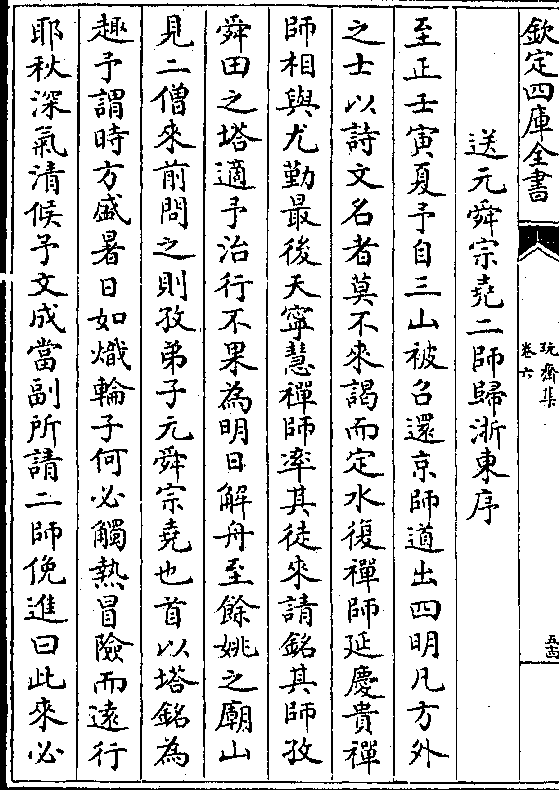 欽定四庫全書
玩齋集
卷六
送元舜宗堯二師歸浙東序
至正壬寅夏予自三山被召還京師道出四明凡方外
之士以詩文名者莫不來謁而定水復禪師延慶貴禪
師相與尤勤最後天寧慧禪師率其徒來請銘其師孜
舜田之塔適予治行不果為明日解舟至餘姚之廟山
見二僧來前問之則孜弟子元舜宗堯也首以塔銘為
趣予謂時方盛暑日如熾輪子何必觸熱冒險而遠行
耶秋深氣清候予文成當副所請二師俛進曰此來必